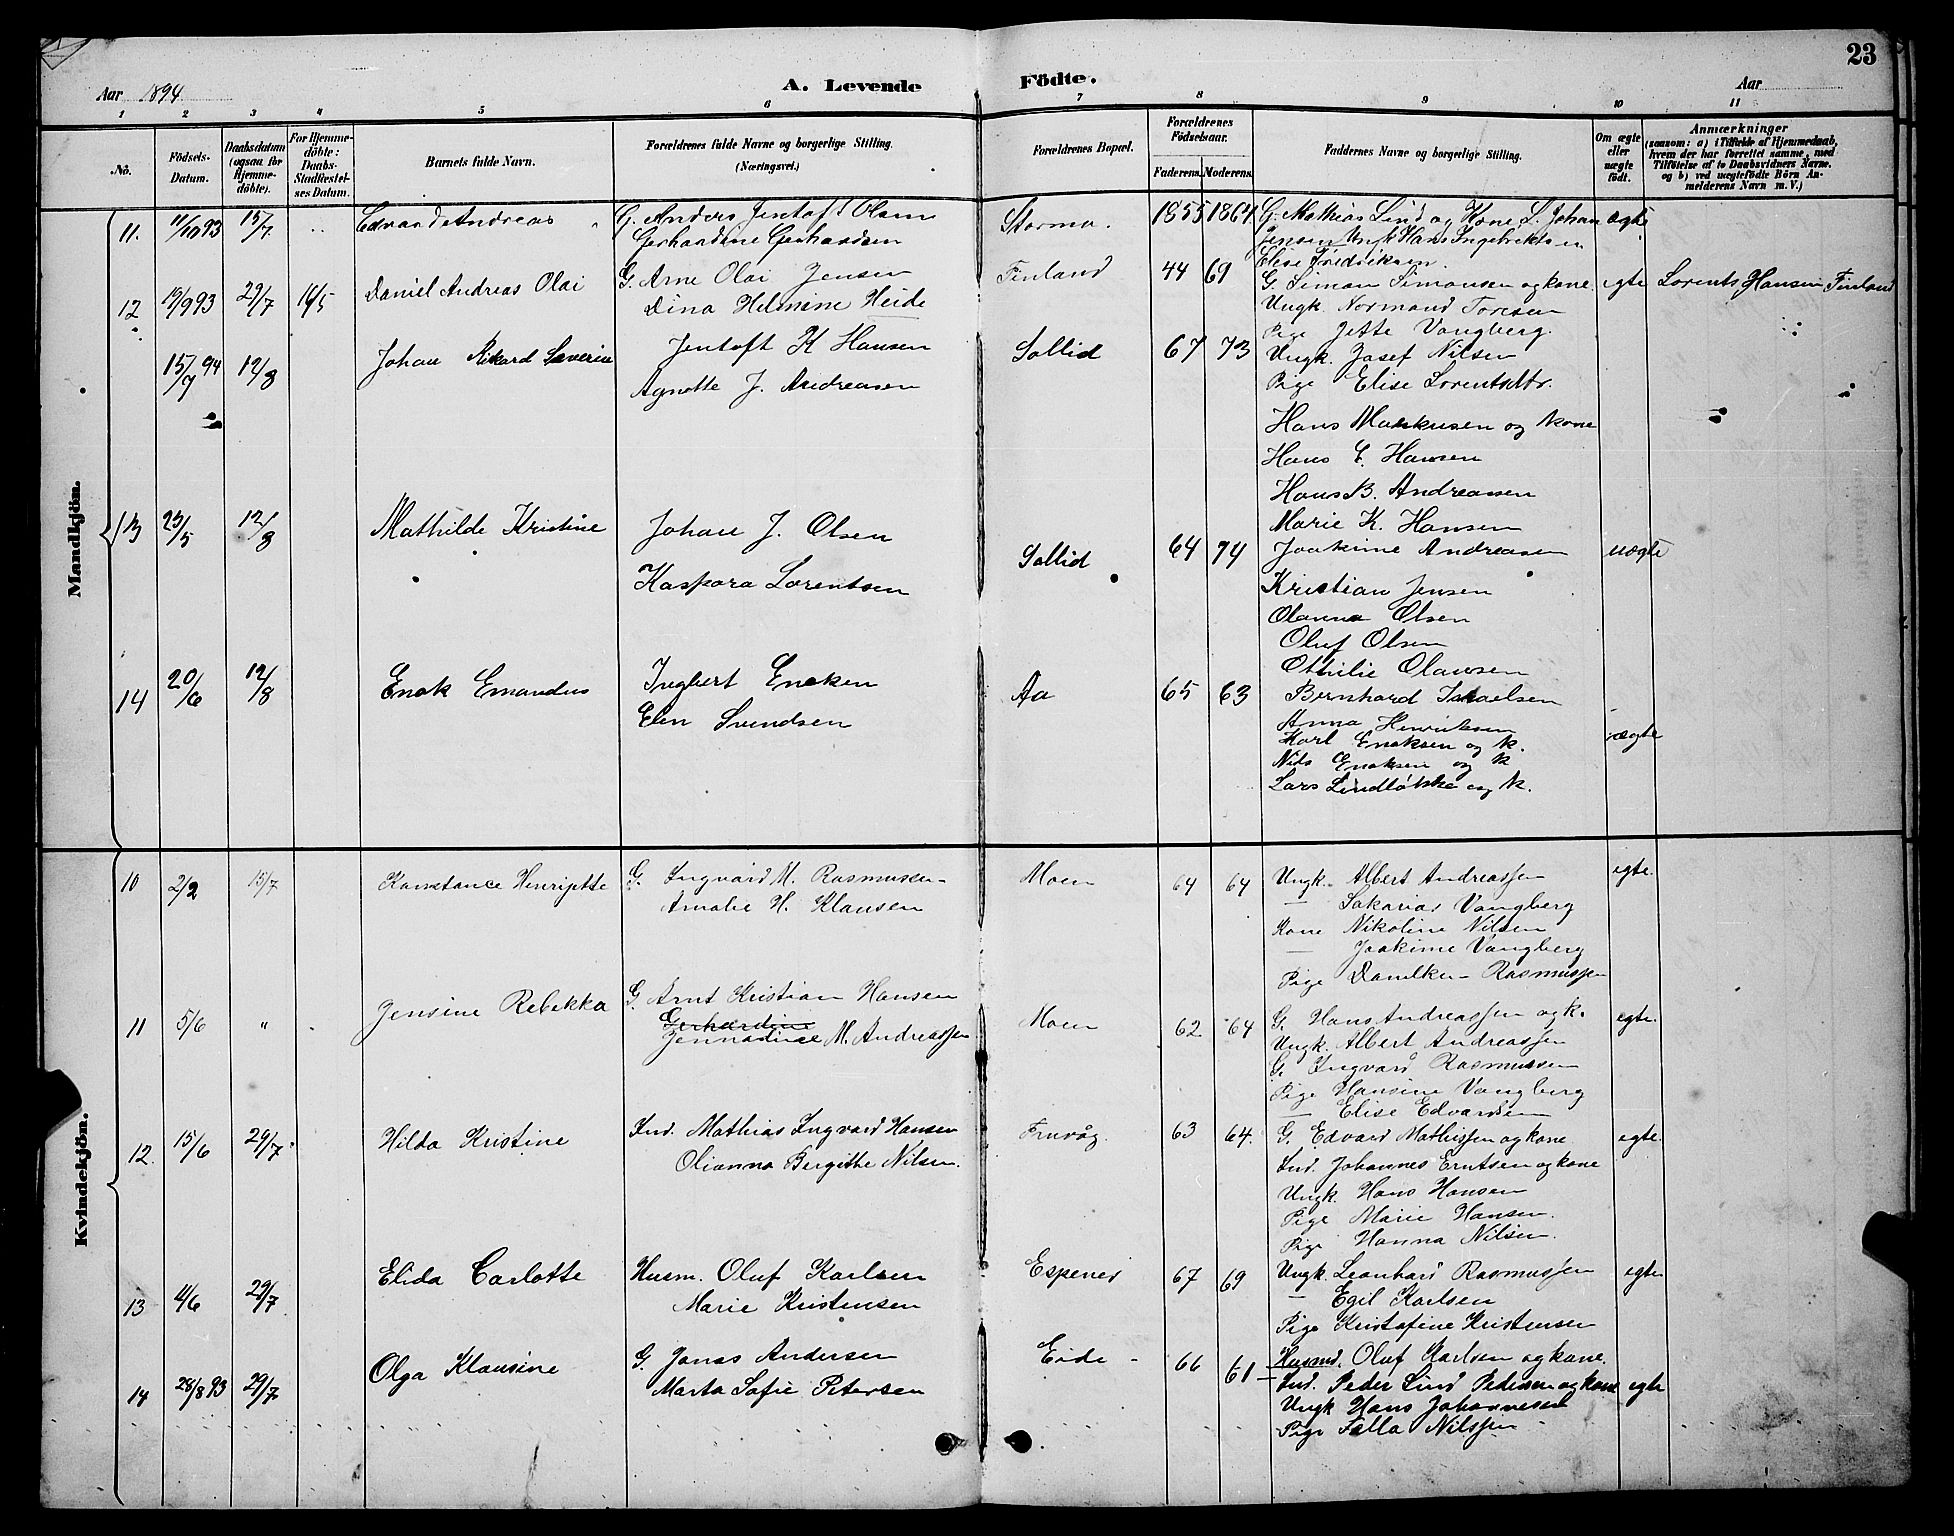 23
Aar 1894
A. Levende Födte.
Aar
1 2 3 4 5 6 7 8 9 10 11
No.
Födsels-Datum.
Daabsdatum (ogsaa for Hjemmedöbte).
For Hjemmedöbte: Daabs-Stadfestelses Datum.
Barnets fulde Navn.
Forældrenes fulde Navne og borgerlige Stilling. (Næringsvei.)
Forældrenes Bopæl.
Forældrenes Födselsaar.
Faderens. Moderens.
Faddernes Navne og borgerlige Stilling.
Om ægte eller uægte födt.
Anmærkninger
(saasom: a) i Tilfælde af Hjemmedaab, hvem der har forrettet samme, med Tilföielse af to Daabsvidners Navne. og b) ved uægtefödte Börn Anmelderens Navn m. V.)
Mandkjön.
11. 11/10 93 15/7 Edvard Andreas G. Anders Jentoft Olsen Stormo. 1855 1864 G. Mathias Lind og Kone L. Johan ægte
Gerhardine Gerhardsen Jensen Ungk Hans Ingebrektsen
Elise Fredriksen.
12 19/9 93 29/7 16/5 Daniel Andreas Olai G. Arne Olai Jensen Finland 44 69 G. Simon Simonsen og kone. egte Lorents Hansen Finland
Dina Helmine Heide Ungk. Normand Toresen
Pige Jette Vangberg.
15/7 94 12/8 Johan Rikard Severin Jentoft K Hansen Sollid 67 73 Ungk. Josef Nilsen
Agnette J. Andreasen Pige Elise Lorentsdtr.
Hans Markusen og kone
Hans E. Hansen
Hans B. Andreassen
Marie K. Hansen
13 23/5 12/8 Mathilde Kristine Johan J. Olsen Sollid 64 74 Joakime Andreasen uægte
Kaspara Lorentsen Kristian Jensen
Olanna Olsen
Oluf Olsen
Ottilie Olausen
14 20/6 12/8 Enok Emandus Ingbert Enoksen Aa 65 63 Bernhard Isakelsen
Elen Svendsen Anna Henriksen
Karl Enoksen og K. uægte
Nils Enoksen og K
Lars Lindløkke og K.
Kvindekjön.
10 2/2 15/7 Konstance Henrijette G. Ingvard M. Rasmussen Moen 64 64 Ungk. Albert Andreassen egte.
Amalie H. Klausen — Sakarias Vangberg
Kone Nikoline Nilsen
— Joakime Vangberg
Pige Danelke Rasmussen
11 5/6 " Jensine Rebekka G. Arnt Kristian Hansen Moen 62 64 G. Hans Andreassen og k. egte.
Gerhardine
Jennadine M. Andreassen Ungk. Albert Andreassen
G. Ingvard Rasmussen
Pige Hansine Vangberg
— Elise Edvardsen
12. 15/6 29/7 Hilda Kristine Ind. Mathias Ingvard Hansen Finvåg. 63 64. G. Edvard Mathissen og kone egte.
Olianna Bergitte Nilsen. Ind. Johannes Erntsen og kone
Ungk. Hans Hansen
Pige Marie Hansen.
Pige Hanna Nilsen.
13 4/6 29/7 Elida Carlotte Husm. Oluf Karlsen Espenes 67 69 Ungk. Leonhard Rasmussen egte
Marie Kristensen — Egil Karlsen
Pige Kristofine Kristensen
14 28/8 93 29/7 Olga Klausine G. Jonas Andersen Eide 66 61 Husmd. Oluf Karlsen og kone.
Marta Sofie Petersen Ind. Peder Lind Pedersen og kone egte
Ungk Hans Johannesen
Pige Salla Nilssen